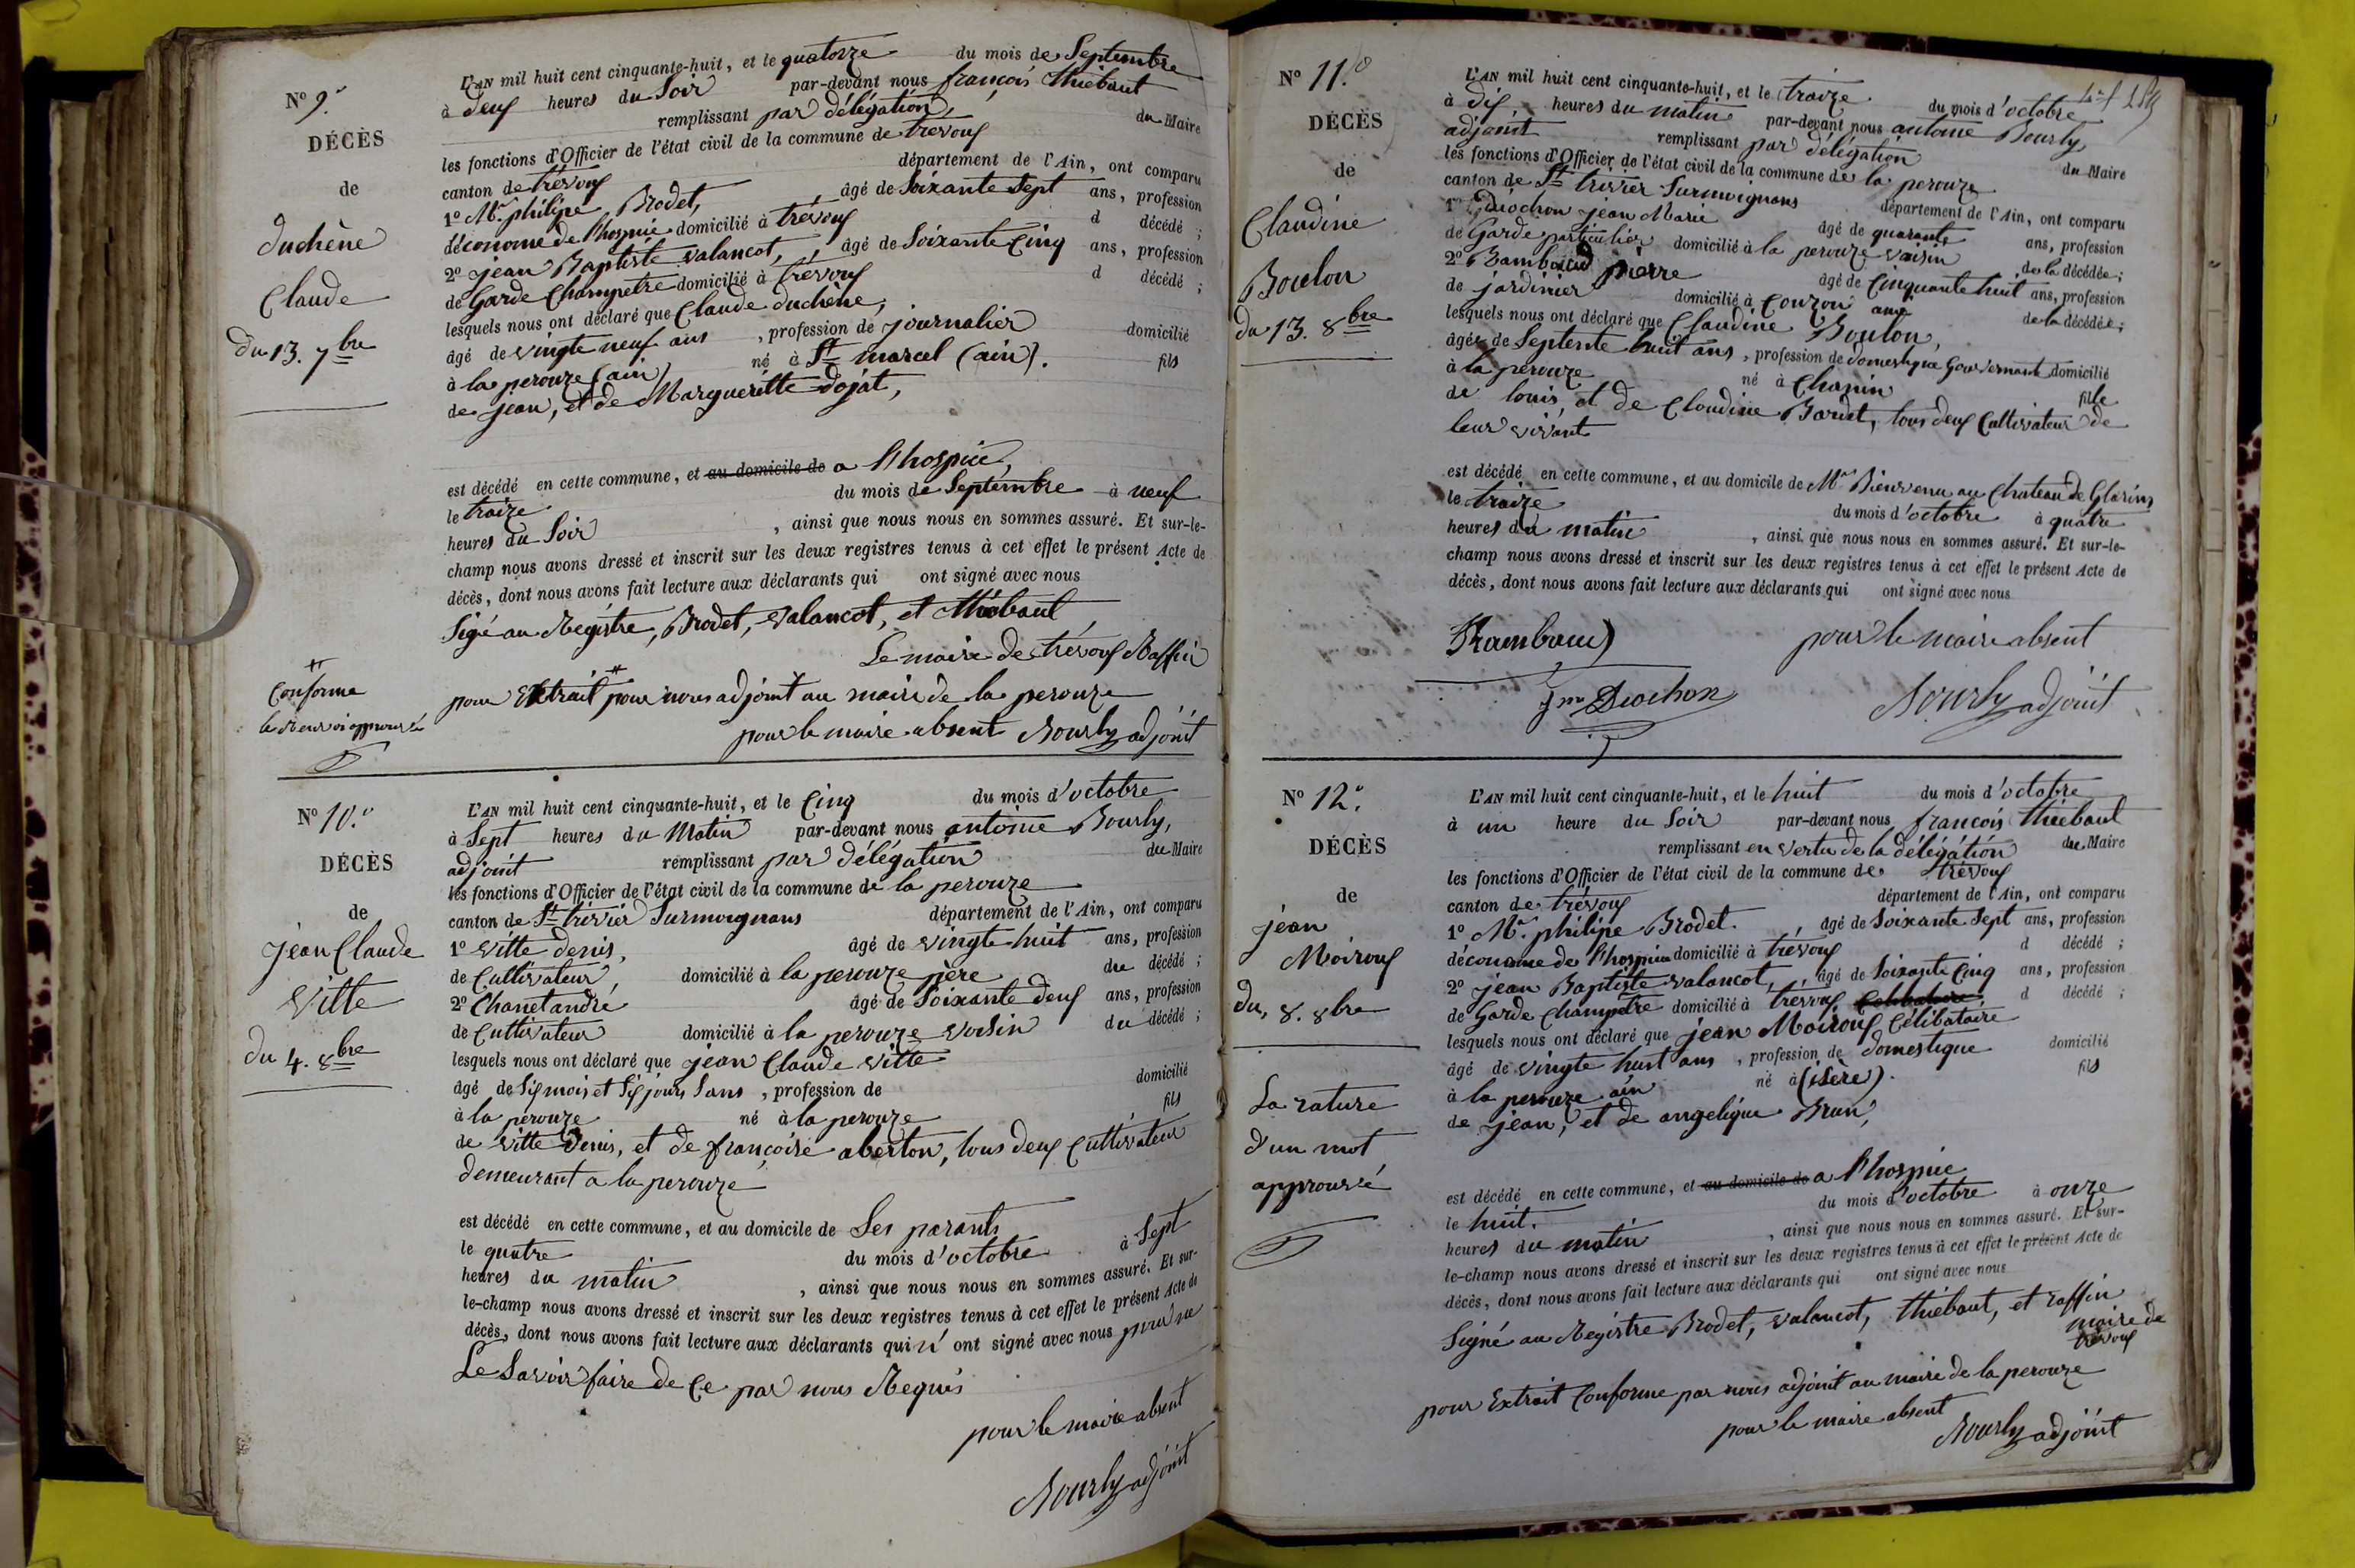 N° 9.
DÉCÈS
de
Duchène
Claude
du 13. 7bre
L'AN mil huit cent cinquante-huit, et le quatorze du mois de Septembre
à deux heures du Soir par-devant nous françois thiebaut
remplissant par délégation, du Maire
les fonctions d'Officier de l'état civil de la commune de trévoux
canton de trévoux département de l'Ain, ont comparu
1° Mr. philipe Brodet, âgé de Soixante Sept ans, profession
d'économe de l'hospice domicilié à trévoux d décédé ;
2° jean Baptiste valancot, âgé de Soixante Cinq ans, profession
de Garde Champetre domicilié à trévoux d décédé ;
lesquels nous ont déclaré que Claude duchène,
âgé de vingte neuf ans , profession de journalier domicilié
à la perouze (ain) né à St marcel (ain). fils
de jean, et de Margueritte dojat,
est décédé en cette commune, et au domicile de a l'hospice,
le traize du mois de Septembre à neuf
heures du Soir , ainsi que nous nous en sommes assuré. Et sur-le-
champ nous avons dressé et inscrit sur les deux registres tenus à cet effet le présent Acte de
décès, dont nous avons fait lecture aux déclarants qui ont signé avec nous
Sigé au Registre, Brodet, valancot, et thiébaut,
Le maire de trévoux Raffin
Conforme
le renvoi approuvé
pour Extrait pour nous adjoint au maire de la perouze
pour le maire absent Bourly adjoint
N° 10.
DÉCÈS
de
jean Claude
Vitte
du 4. 8bre
L'AN mil huit cent cinquante-huit, et le Cinq du mois d'octobre
à Sept heures du Matin par-devant nous antoine Bourly,
adjoint remplissant par délégation du Maire
les fonctions d'Officier de l'état civil de la commune de la perouze
canton de St trivier Surmoignans département de l'Ain, ont comparu
1° Vitte denis, âgé de vingte huit ans, profession
de Cultivateur, domicilié à la perouze père du décédé ;
2° Chanet andré âgé de Soixante deux ans, profession
de Cultivateur domicilié à la perouze voisin du décédé ;
lesquels nous ont déclaré que jean Claude vitte
âgé de Six mois et Six jours Sans , profession de domicilié
à la perouze né à la perouze fils
de vitte Denis, et de françoise aberton, tous deux Cultivateur
demeurant a la perouze
est décédé en cette commune, et au domicile de Ses parants
le quatre du mois d'octobre à Sept
heures du matin , ainsi que nous nous en sommes assuré. Et sur-
le-champ nous avons dressé et inscrit sur les deux registres tenus à cet effet le présent Acte de
décès, dont nous avons fait lecture aux déclarants qui n'ont signé avec nous pour ne
Le Savoir faire de Ce par nous Requis
pour le maire absent
Bourly adjoint
N° 11.
DÉCÈS
de
Claudine
Boulon
du 13. 8bre
L'AN mil huit cent cinquante-huit, et le traize du mois d'octobre
à dix heures du matin par-devant nous antoine Bourly,
adjoint remplissant par délégation du Maire
les fonctions d'Officier de l'état civil de la commune de la perouze
canton de St trivier Surmoignans département de l'Ain, ont comparu
1° Diochon jean Marie âgé de quarante ans, profession
de Garde particulier domicilié à la perouze voisin de la décédée ;
2° Rambaud pierre âgé de Cinquante huit ans, profession
de jardinier domicilié à Couzon ami de la décédée ;
lesquels nous ont déclaré que Claudine Boulon,
âgée de Septente huit ans , profession de domestique Gouvernante domicilié
à la perouze né à Chanin fille
de louis, et de Claudine Bardet, tous deux Cultivateur de
leur vivant
est décédé en cette commune, et au domicile de Mr Bienvenu au Chateau de Glarins
le traize du mois d'octobre à quatre
heures du matin , ainsi que nous nous en sommes assuré. Et sur-le-
champ nous avons dressé et inscrit sur les deux registres tenus à cet effet le présent Acte de
décès, dont nous avons fait lecture aux déclarants qui ont signé avec nous
Rambaud pour le maire absent
Jm Diochon Bourly adjoint
N° 12.
DÉCÈS
de
jean
Moiroux
du, 8. 8bre
La rature
d'un mot
approuvé
L'AN mil huit cent cinquante-huit, et le huit du mois d'octobre
à un heure du Soir par-devant nous françois thiebaut
remplissant en vertu de la délégation du Maire
les fonctions d'Officier de l'état civil de la commune de trévoux
canton de trévoux département de l'Ain, ont comparu
1° Mr. philipe Brodet. âgé de Soixante Sept ans, profession
d'économe de l'hospice domicilié à trévoux d décédé ;
2° jean Baptiste valancot, âgé de Soixante Cinq ans, profession
de Garde Champetre domicilié à trévoux Celibataire d décédé ;
lesquels nous ont déclaré que jean Moiroux Célibataire
âgé de vingte huit ans , profession de domestique domicilié
à la perouze ain né à (isère). fils
de jean, et de angelique Brun,
est décédé en cette commune, et au domicile de a l'hospice
le huit. du mois d'octobre à onze
heures du matin , ainsi que nous nous en sommes assuré. Et sur-
le-champ nous avons dressé et inscrit sur les deux registres tenus à cet effet le présent Acte de
décès, dont nous avons fait lecture aux déclarants qui ont signé avec nous
Signé au Registre Brodet, valancot, thiébaut, et raffin
maire de
trévoux
pour Extrait Conforme par nous adjoint au maire de la perouze
pour le maire absent
Bourly adjoint